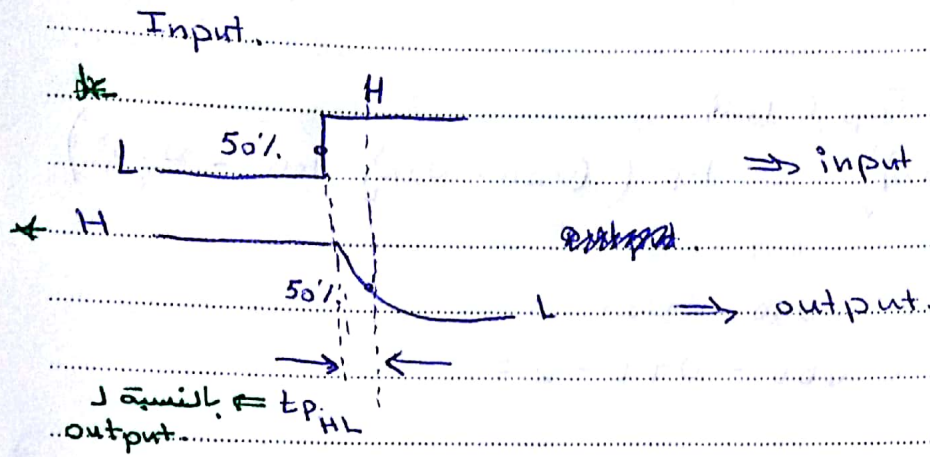 Input.
H
L 50% ⇒ input
H
50% L ⇒ output.
بالنسبة لـ ⇐ tpHL
output.